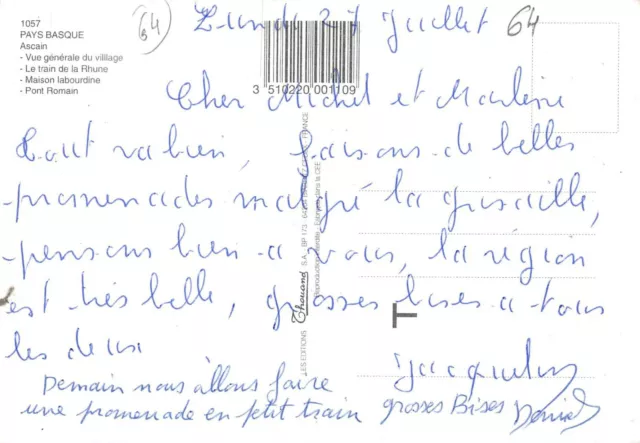 1057
PAYS BASQUE
Ascain
- Vue générale du villlage
- Le train de la Rhune
- Maison labourdine
- Pont Romain
64
Lundi 27 Juillet 64
3 510220 001109
Cher Michel et Marlène
tout va bien, faisons de belles
promenades malgré la grisaille,
pensons bien a vous, la région
est très belle, grosses bises a tous
les deux
Jacqueline
Demain nous allons faire
une promenade en petit train
grosses Bises Daniel
LES EDITIONS Thouand S.A. - BP 173 - FRANCE
Reproduction interdite - Fabriqué dans la CEE
T